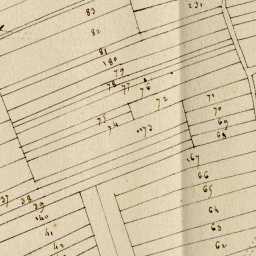 231
83
82
81
180
79
78 77 76
72
71
70
75
74
73
69
68
67
66
65
37 38 39
64
40
63
41
42
62